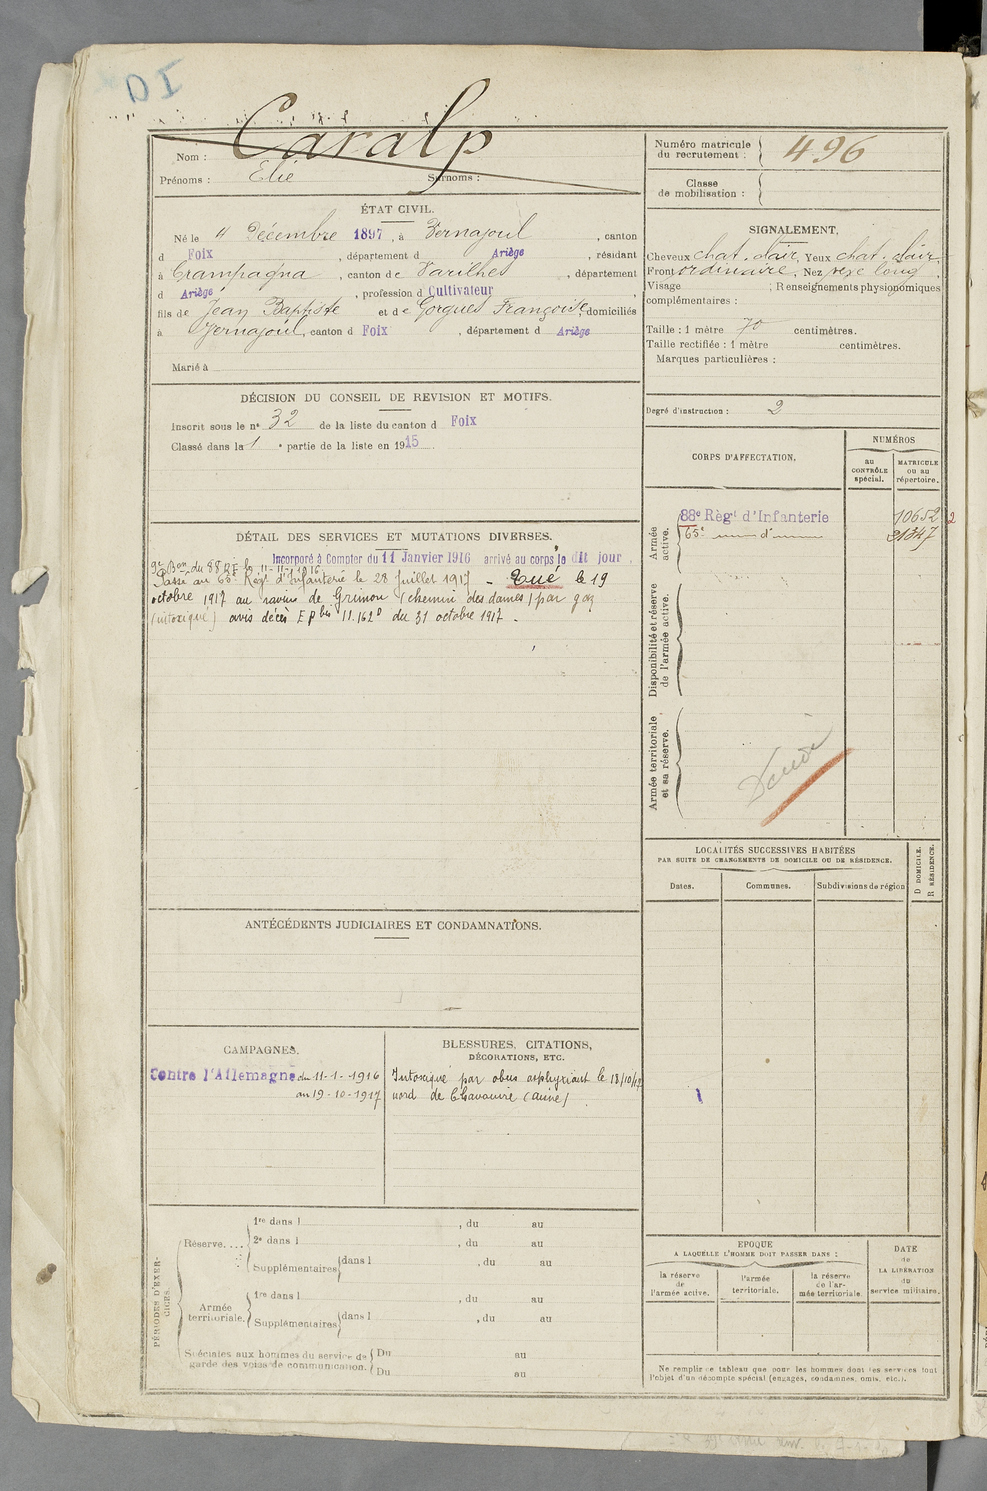 DI
Nom : Caralp
Prénoms : Elie Surnoms :
ÉTAT CIVIL.
Né le 4 Décembre 1897, à Vernajoul, canton
d Foix, département d Ariège, résidant
à Crampagna, canton de Varilhes, département
d Ariège, profession d Cultivateur
fils de Jean Baptiste et de Gorgues Françoise, domiciliés
à Vernajoul, canton d Foix, département d Ariège
Marié à
DÉCISION DU CONSEIL DE REVISION ET MOTIFS.
Inscrit sous le n° 32 de la liste du canton d Foix
Classé dans la 1e partie de la liste en 1915
DÉTAIL DES SERVICES ET MUTATIONS DIVERSES.
Incorporé à Compter du 11 Janvier 1916 arrivé au corps le dit jour.
9e Bon du 88 RI le 11-11-1916
Passé au 63e Régt d'Infanterie le 28 Juillet 1917 - Tué le 19
octobre 1917 au ravin de Grinon (chemin des dames) par gaz
(intoxiqué) avis décès EP bis 11.162D du 31 octobre 1917 -
ANTÉCÉDENTS JUDICIAIRES ET CONDAMNATIONS.
CAMPAGNES.
Contre l'Allemagne du 11-1-1916
au 19-10-1917
BLESSURES, CITATIONS,
DÉCORATIONS, ETC.
Intoxiqué par obus asphyxiant le 18/10/17
nord de Chavonne (Aisne)
PÉRIODES D'EXER-
CICES.
Réserve....
1re dans l , du au
2e dans l , du au
Supplémentaires dans l , du au
Armée
territoriale.
1re dans l , du au
Supplémentaires dans l , du au
Spéciales aux hommes du service de
garde des voies de communication.
Du au
Du au
Numéro matricule
du recrutement : 496
Classe
de mobilisation :
SIGNALEMENT.
Cheveux chat. clair, Yeux chat. clair,
Front ordinaire, Nez vexe long
Visage ; Renseignements physionomiques
complémentaires :
Taille : 1 mètre 70 centimètres.
Taille rectifiée : 1 mètre centimètres.
Marques particulières :
Degré d'instruction : 2
CORPS D'AFFECTATION.
NUMÉROS
au
CONTRÔLE
spécial.
MATRICULE
ou au
répertoire.
Armée
active.
88e Régt d'Infanterie 10652 2
63e d° 21347
Disponibilité et réserve
de l'armée active.
Armée territoriale
et sa réserve.
LOCALITÉS SUCCESSIVES HABITÉES
PAR SUITE DE CHANGEMENTS DE DOMICILE OU DE RÉSIDENCE.
Dates.
Communes.
Subdivisions de région
D DOMICILE.
R RÉSIDENCE.
EPOQUE
A LAQUELLE L'HOMME DOIT PASSER DANS :
la réserve
de
l'armée active.
l'armée
territoriale.
la réserve
de l'ar-
mée territoriale.
DATE
de
LA LIBÉRATION
du
service militaire.
Ne remplir ce tableau que pour les hommes dont les services font
l'objet d'un décompte spécial (engagés, condamnés, omis, etc.).